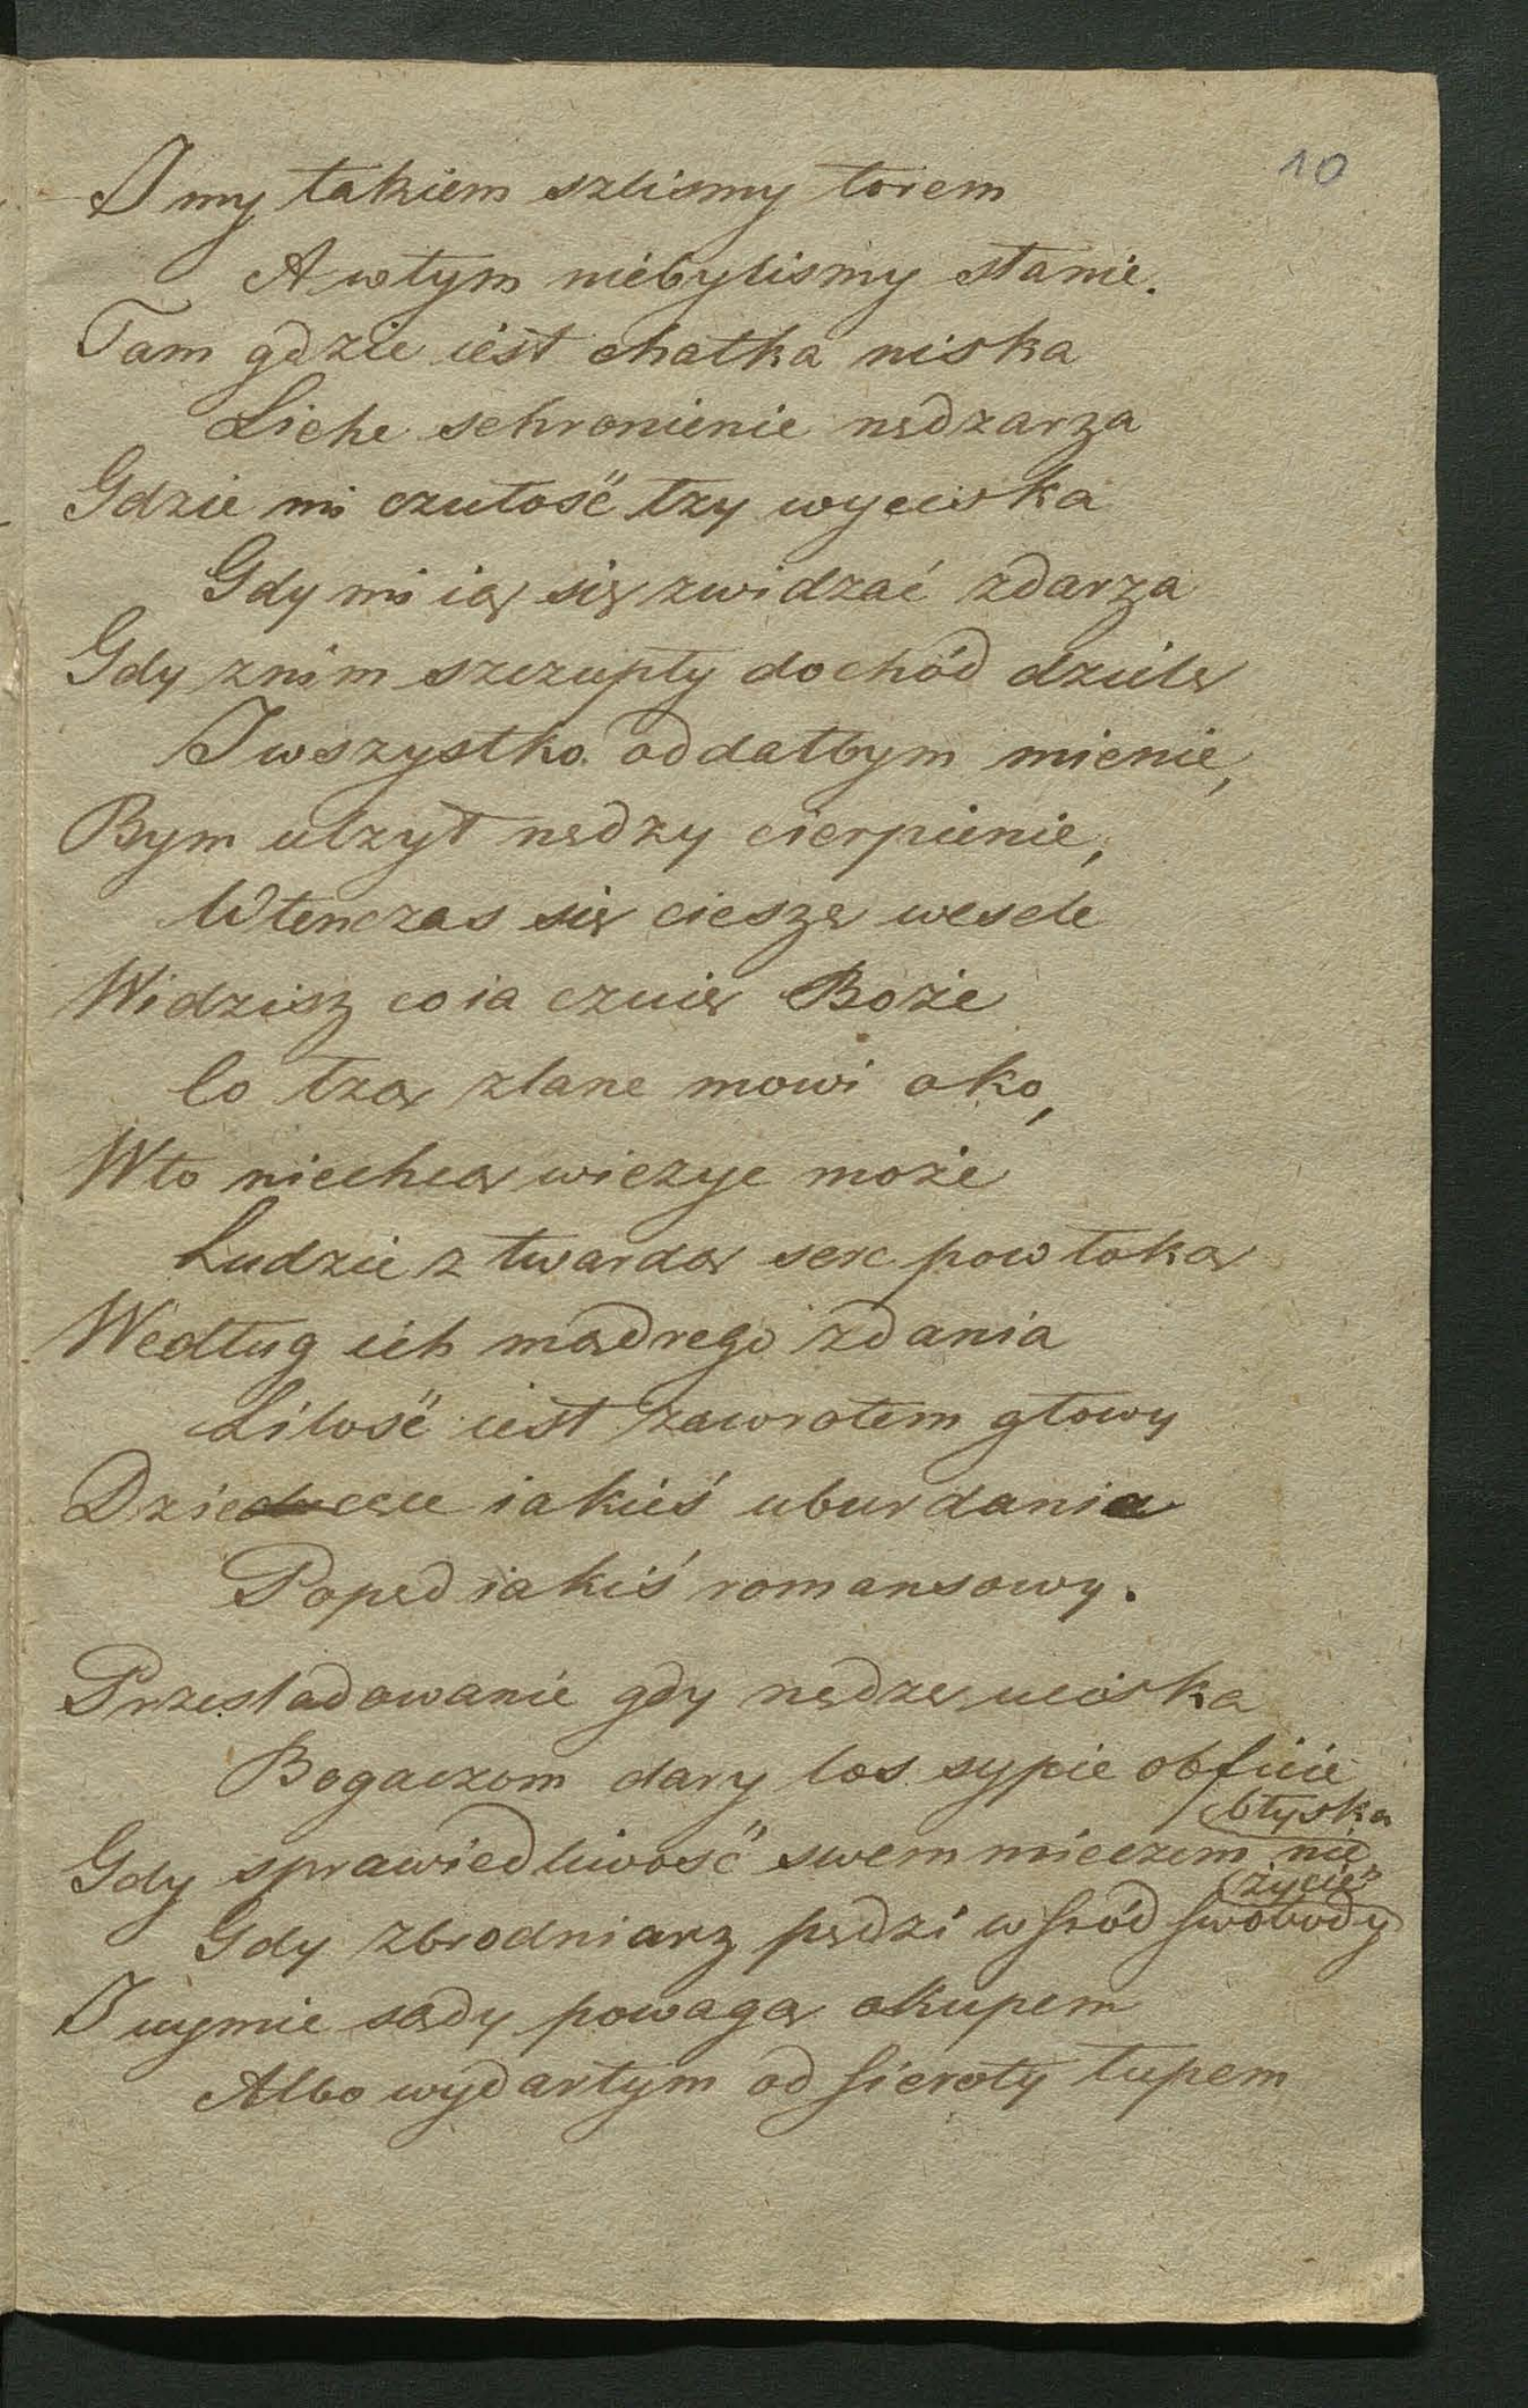 10
I my takiem szlismy torem
A w tym niebylismy stanie.
Tam gdzie iest chatka niska
Liche schronienie nędzarza
Gdzie mi czułość łzy wyciska
Gdy mi ią się zwidzać zdarza
Gdy znim szczupły dochód dzielę
I wszystko oddałbym mienie,
Bym ulzył nędzy cierpienie,
Wtenczas się cieszę wesele
Widzisz co ia czuię Boże
Co łzą zlane mowi oko,
W to niechcą wiezyc może
Ludzie z twardą serc powłoką
Według ich mądrego zdania
Litość iest zawrotem głowy
Dziecęce iakieś uburdania
Popęd iakiś romansowy.
Przesladowanie gdy nędzę uciska
Bogaczom dary los sypie obficie
błyska
Gdy sprawiedliwość swem mieczem nie
życie
Gdy zbrodniarz pędzi wsród swobody
I uymie sądy powagą okupem
Albo wydartym od sieroty łupem